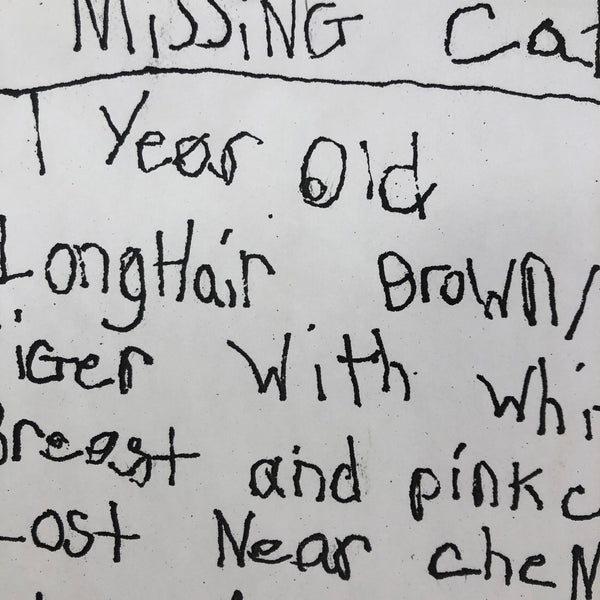 MISSING Cat
1 Year Old
LongHair Brown/
Tiger With Whi
Breast and pink c
Lost Near cheM